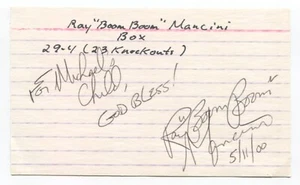 Ray "Boom Boom" Mancini
Box
29-4 (23 Knockouts)
For Michael's
Child,
GOD BLESS!
Ray "Boom Boom"
Mancini
5/11/00